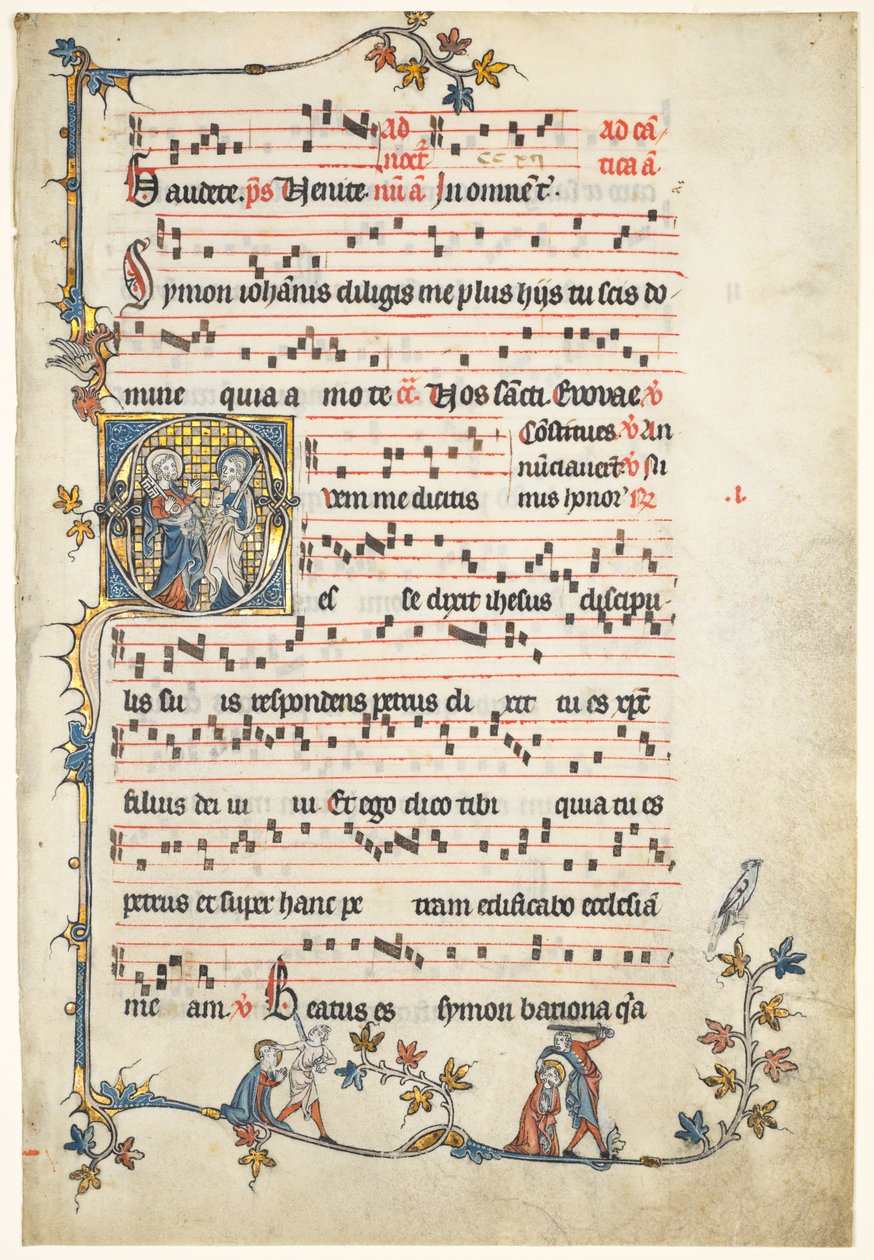 Ad Ad cā
noct̄ tica ā
Gaudete. p̄s Venite. nū ā In omnē t̄.
Symon iohānis diligis me plus hijs tu scis do
mine quia a mo te c̄ā. Vos sāncti. Evovae. v̄
Cōstitues v̄ An
nūciavert̄ v̄ Ni
Qvem me dicitis mus honor' R̄
es se dixit ihesus discipu
lis su is respondens petrus di xit tu es xp̄c
filius dei ui ui Et ego dico tibi quia tu es
petrus et super hanc pe tram edificabo ecclesiā
me am. v̄ Beatus es symon bariona q̄a
.l.